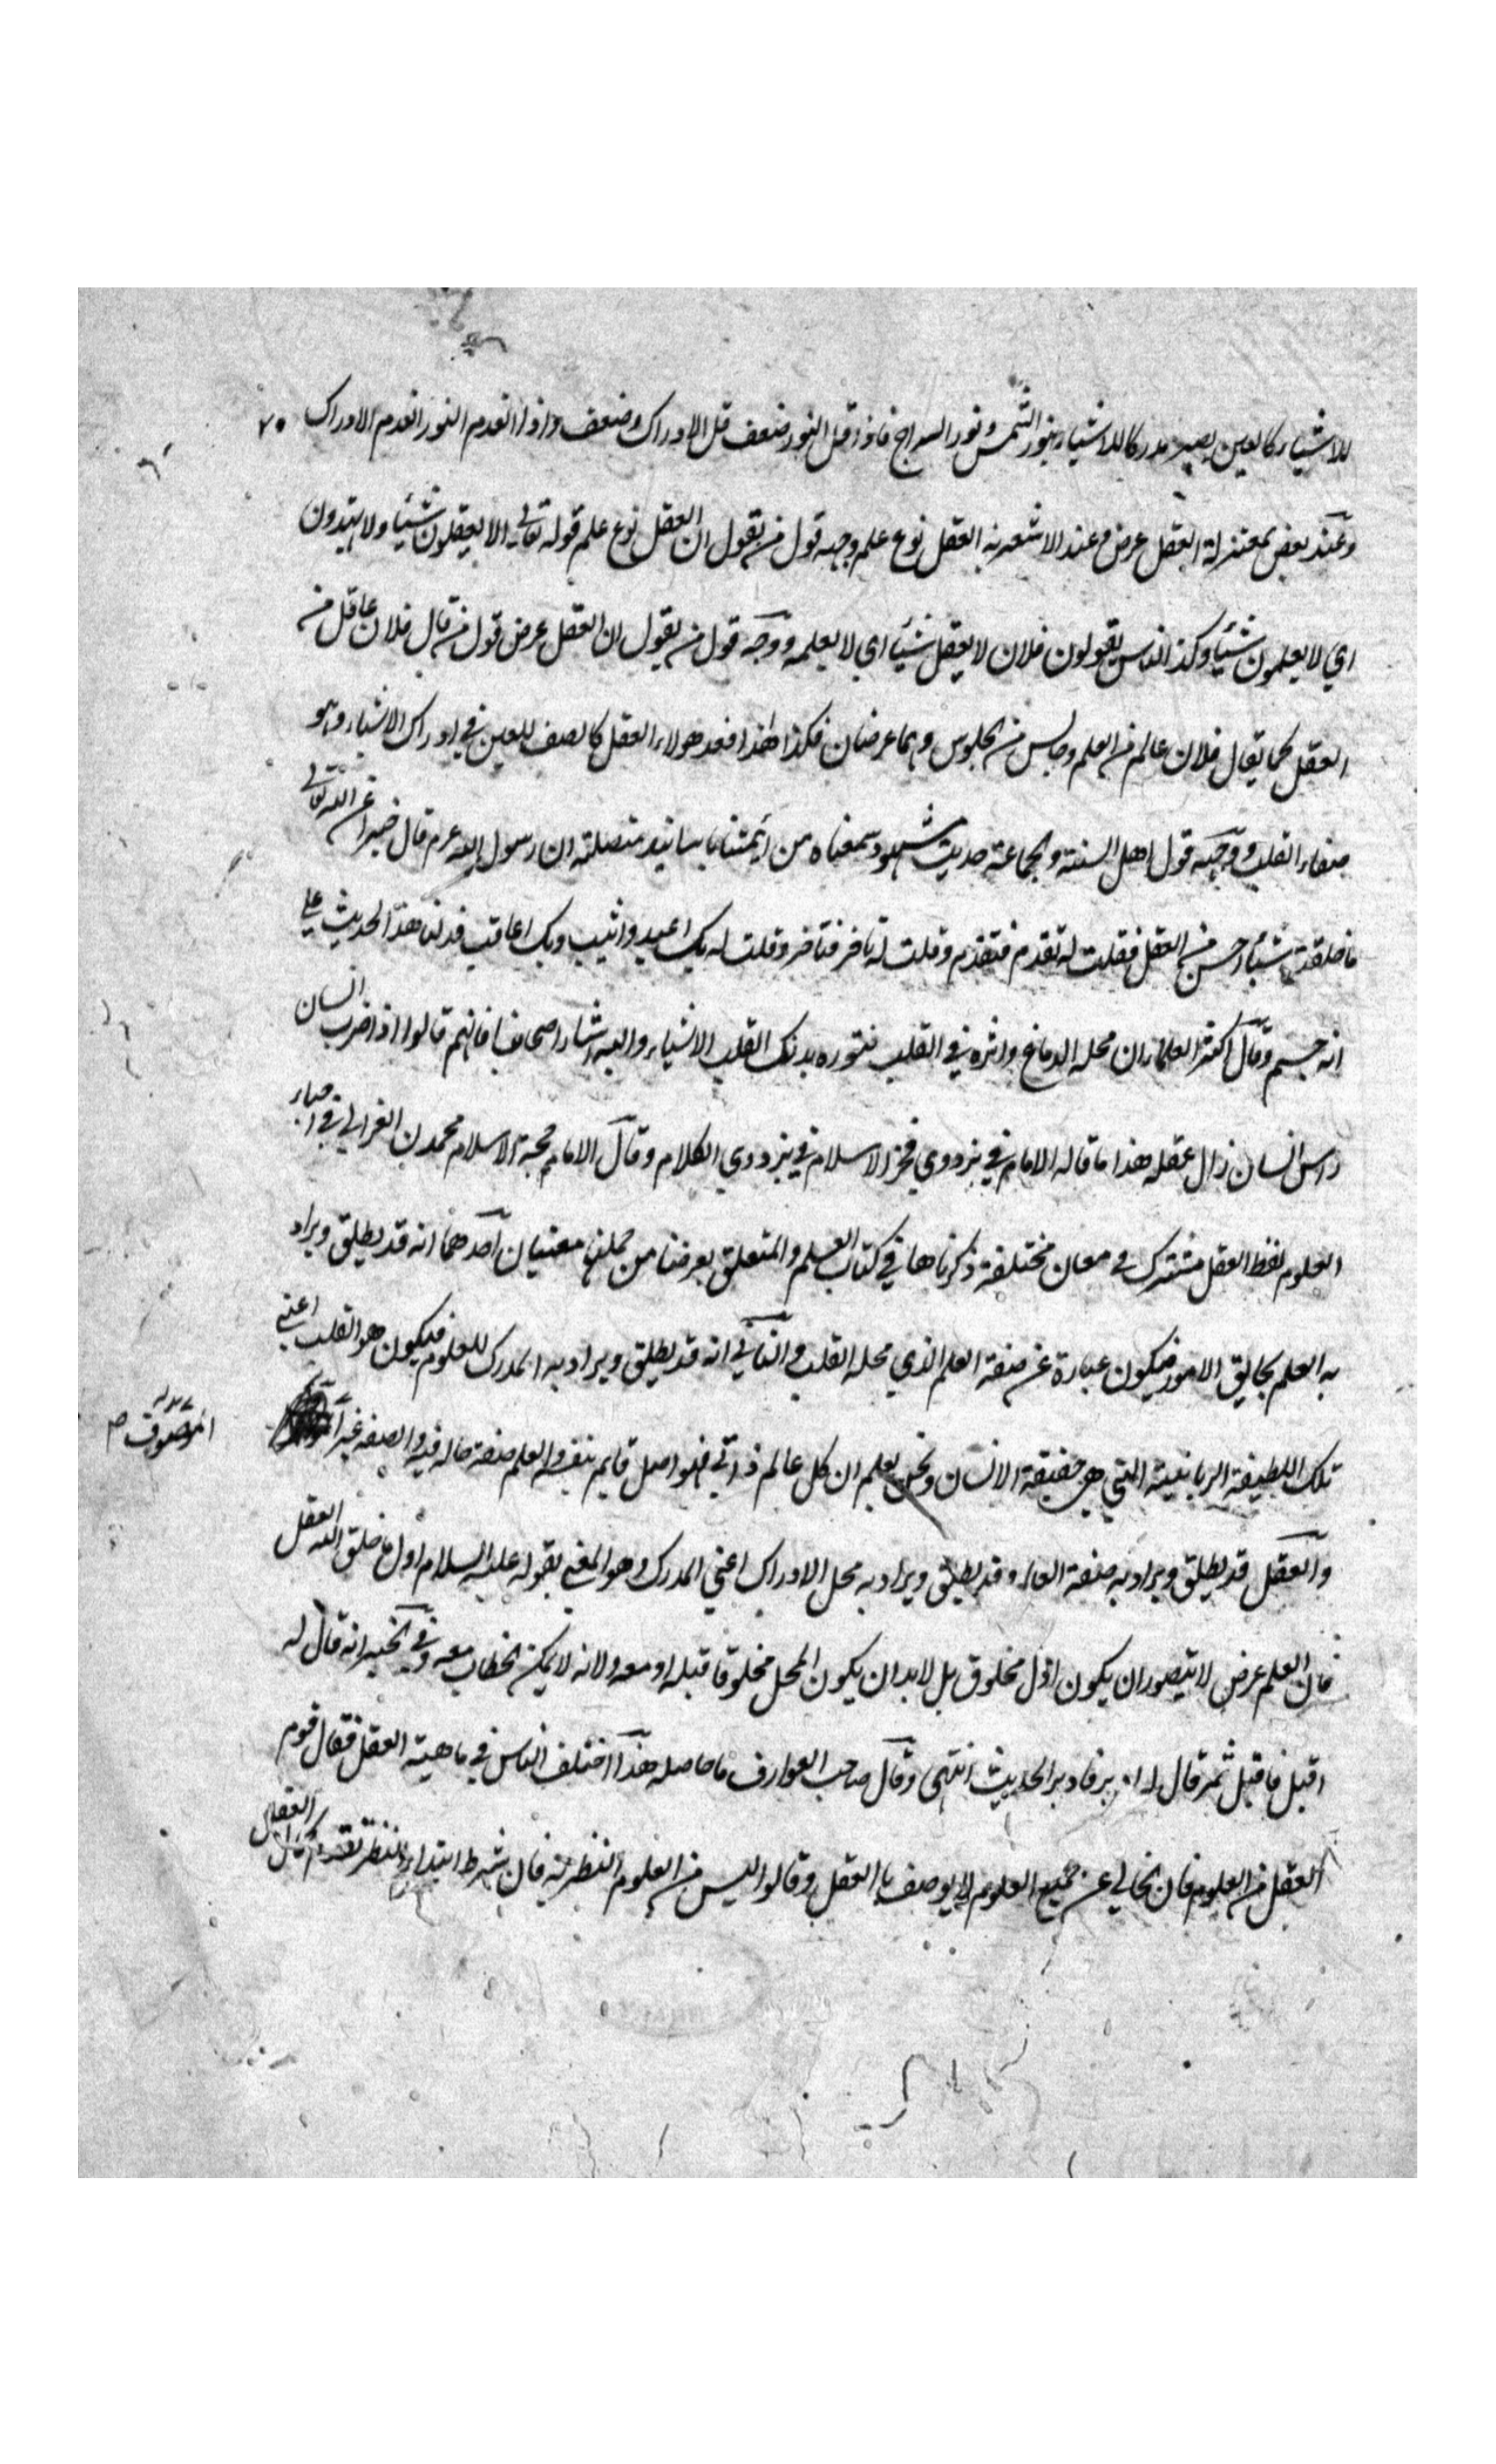 للاشياء كالعين يصير مدركا للاشياء بنور الشمس ونور السراج فاذا قل النور وضعف قل الادراك وضعف واذا انعدم النور انعدم الادراك ٧٥
وعند بعض المعتزلة العقل عرض وعند الاشعرية العقل نوع علم وجه قول من يقول ان العقل نوع علم قوله تعالى الا يعقلون شيئا ولا يهتدون
اي لا يعلمون شيئا وكذا الناس يقولون فلان لا يعقل شيئا اي لا يعلمه ووجه قول من يقول ان العقل عرض قول من قال فلان عاقل من
العقل كما يقال فلان عالم من العلم وجالس من الجلوس وهما عرضان فكذا هذا فعند هولاء العقل كالصف للعين في ادراك الاشياء وهو
صفاء القلب ووجه قول اهل السنة والجماعة حديث مشهود سمعناه من ائمتنا باسانيد متصلة ان رسول الله عم قال خبرا عن الله تعالى
ما خلقت شيئا احسن من العقل فقلت له تقدم فتقدم وقلت له تاخر فتاخر وقلت له بك اعبد واثيب وبك اعاقب فدلنا هذا الحديث على
انه جسم وقال اكثر العلماء ان محله الدماغ واثره في القلب فنوره يدرك القلب الاشياء واليه اشار اصحابنا فانهم قالوا اذا ضرب انسان
راس انسان زال عقله هذا ما قاله الامام في بزدوي فخر الاسلام في بزدوي الكلام وقال الامام حجة الاسلام محمد بن الغزالي في احياء
العلوم لفظ العقل مشترك في معان مختلفة ذكرناها في كتاب العلم والمتعلق بغرضنا من جملتها معنيان احدهما انه قد يطلق ويراد
به العلم بحقايق الامور فيكون عبارة عن صفة العلم الذي محله القلب والثاني انه قد يطلق ويراد به المدرك للعلوم فيكون هو القلب اعني
تلك اللطيفة الربانية التي هي حقيقة الانسان ونحن نعلم ان كل عالم ذاتي فهو اصل قايم بنفسه والعلم صفة حالة فيه والصفة غير
الموصوف ص
والعقل قد يطلق ويراد به صفة العالم وقد يطلق ويراد به محل الادراك اعني المدرك وهو المعني بقوله عليه السلام اول ما خلق الله العقل
فان العلم عرض لا يتصور ان يكون اول مخلوق بل لا بد ان يكون المحل مخلوقا قبله او معه ولانه لا يمكن الخطاب معه وفي الخبر انه قال له
اقبل فاقبل ثم قال له ادبر فادبر الحديث انتهى وقال صاحب العوارف ما حاصله هذا اختلف الناس في ماهية العقل فقال قوم
العقل من العلوم فان الخالي عن جميع العلوم لا يوصف بالعقل وقالوا ليس من العلوم النظرية فان شرط ابتداء النظر تقدم كمال العقل